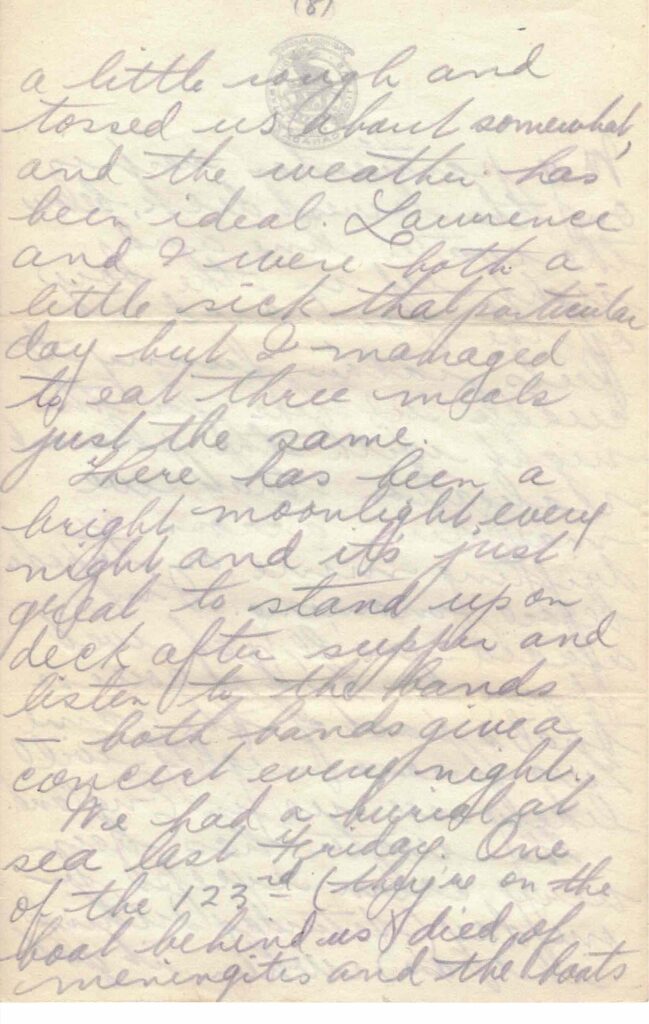 (8)
a little rough and
tossed us about somewhat,
and the weather has
been ideal. Lawrence
and I were both a
little sick that particular
day but I managed
to eat three meals
just the same.
There has been a
bright moonlight every
night and it's just
great to stand up on
deck after supper and
listen to the bands
— both bands give a
concert every night.
We had a burial at
sea last Friday. One
of the 123rd (they're on the
boat behind us) died of
meningites and the boats